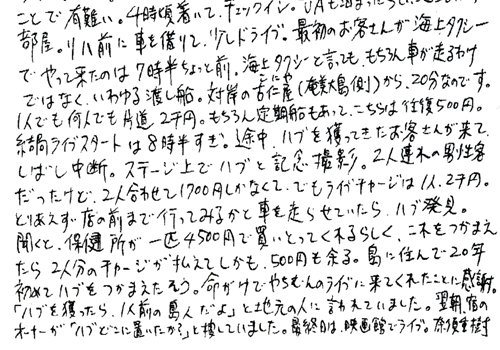 ことで有難い。4時頃着いて、チェックイン。
部屋。リハ前に車を借りて、少しドライブ。最初のお客さんが海上タクシー
でやって来たのは7時半ちょっと前。海上タクシーと言っても、もちろん車が走るわけ
ではなく、いわゆる渡し船。対岸の古仁屋(奄美大島側)から、20分なのです。
こにや
1人でも何人でも片道2千円。もちろん定期船もあって、こちらは往復500円。
結局ライブスタートは8時半すぎ。途中、ハブを獲ってきたお客さんが来て、
しばし中断。ステージ上でハブと記念撮影。2人連れの男性客
だったけど、2人合わせて1700円しかなくて、でもライブチャージは1人、2千円。
とりあえず店の前まで行ってみるかと車を走らせていたら、ハブ発見。
聞くと、保健所が一匹4500円で買いとってくれるらしく、これをつかまえ
たら2人分のチャージが払えてしかも、500円も余る。島に住んで20年
初めてハブをつかまえたそう。命がけでやちむんのライブに来てくれたことに感謝。
「ハブを獲ったら、1人前の島人だよ」と地元の人に言われていました。翌朝、宿の
オーナーが「ハブどこに置いたか?」と捜していました。最終日は、映画館でライブ。奈須重樹